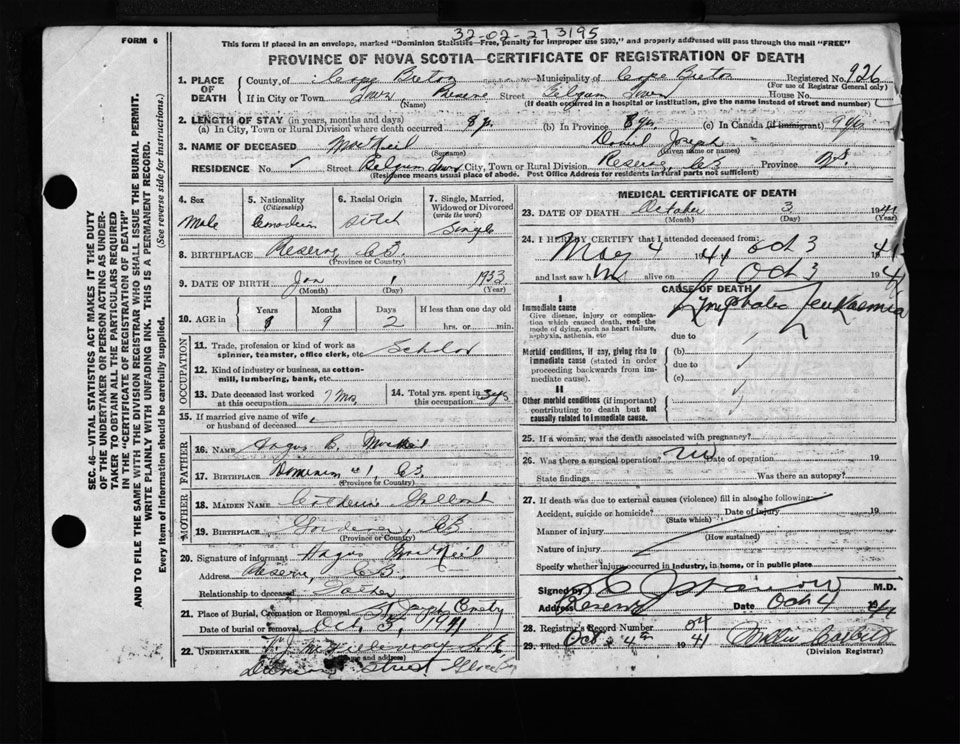 32-02-273195
FORM 6
This form if placed in an envelope, marked "Dominion Statistics—Free, penalty for improper use $300," and properly addressed will pass through the mail "FREE"
PROVINCE OF NOVA SCOTIA—CERTIFICATE OF REGISTRATION OF DEATH
SEC. 46—VITAL STATISTICS ACT MAKES IT THE DUTY
OF THE UNDERTAKER OR PERSON ACTING AS UNDER-
TAKER TO OBTAIN ALL THE PARTICULARS REQUIRED
IN THE "CERTIFICATE OF REGISTRATION OF DEATH"
AND TO FILE THE SAME WITH THE DIVISION REGISTRAR WHO SHALL ISSUE THE BURIAL PERMIT.
WRITE PLAINLY WITH UNFADING INK. THIS IS A PERMANENT RECORD.
Every item of information should be carefully supplied. (See reverse side for instructions.)
1. PLACE OF DEATH County of Cape Breton Municipality of Cape Breton Registered No. 926
(For use of Registrar General only)
If in City or Town Town Reserve Street Belgium Town House No.
(Name) (If death occurred in a hospital or institution, give the name instead of street and number)
2. LENGTH OF STAY (in years, months and days)
(a) In City, Town or Rural Division where death occurred 8 yr. (b) In Province 8 yr. (c) In Canada (if immigrant)
3. NAME OF DECEASED MacNeil Daniel Joseph
(Surname) (Given name or names)
RESIDENCE No. Street Belgium Town City, Town or Rural Division Reserve CB Province NS
(Residence means usual place of abode. Post Office Address for residents in rural parts not sufficient)
4. Sex Male
5. Nationality (Citizenship) Canadian
6. Racial Origin Scotch
7. Single, Married, Widowed or Divorced (write the word) Single
8. BIRTHPLACE Reserve, CB.
(Province or Country)
9. DATE OF BIRTH Jan 1 1933
(Month) (Day) (Year)
10. AGE in Years 8 Months 9 Days 2 If less than one day old
hrs. or min.
OCCUPATION
11. Trade, profession or kind of work as
spinner, teamster, office clerk, etc. Scholar
12. Kind of industry or business, as cotton-
mill, lumbering, bank, etc.
13. Date deceased last worked at this occupation 7 Mos
14. Total yrs. spent in this occupation 3 yrs
15. If married give name of wife
or husband of deceased
FATHER
16. NAME Angus B. MacNeil
17. BIRTHPLACE Dominion #1, CB
(Province or Country)
MOTHER
18. MAIDEN NAME
19. BIRTHPLACE CB
(Province or Country)
20. Signature of informant Angus MacNeil
Address Reserve, CB.
Relationship to deceased Father
21. Place of Burial, Cremation or Removal St Joseph
Date of burial or removal Oct. 5, 1941
22. UNDERTAKER
(Name and address)
Street
MEDICAL CERTIFICATE OF DEATH
23. DATE OF DEATH October 3 1941
(Month) (Day) (Year)
24. I HEREBY CERTIFY that I attended deceased from:
May 4 1941 Oct 3 1941
and last saw him alive on Oct 3 1941
CAUSE OF DEATH
I
Immediate cause Lymphatic Leukaemia
Give disease, injury or complica-
tion which caused death, not the
mode of dying, such as heart failure,
asphyxia, asthenia, etc
due to
Morbid conditions, if any, giving rise to
immediate cause (stated in order
proceeding backwards from im-
mediate cause).
(b)
due to
(c)
II
Other morbid conditions (if important)
contributing to death but not
causally related to immediate cause.
25. If a woman, was the death associated with pregnancy?
26. Was there a surgical operation? no Date of operation 19
State findings Was there an autopsy?
27. If death was due to external causes (violence) fill in also the following:
Accident, suicide or homicide? Date of injury 19
(State which)
Manner of injury
(How sustained)
Nature of injury
Specify whether injury occurred in industry, in home, or in public place
Signed by M.D.
Address Reserve Date Oct 4 1941
28. Registrar's Record Number 84
29. Filed Oct. 4th 1941
(Division Registrar)